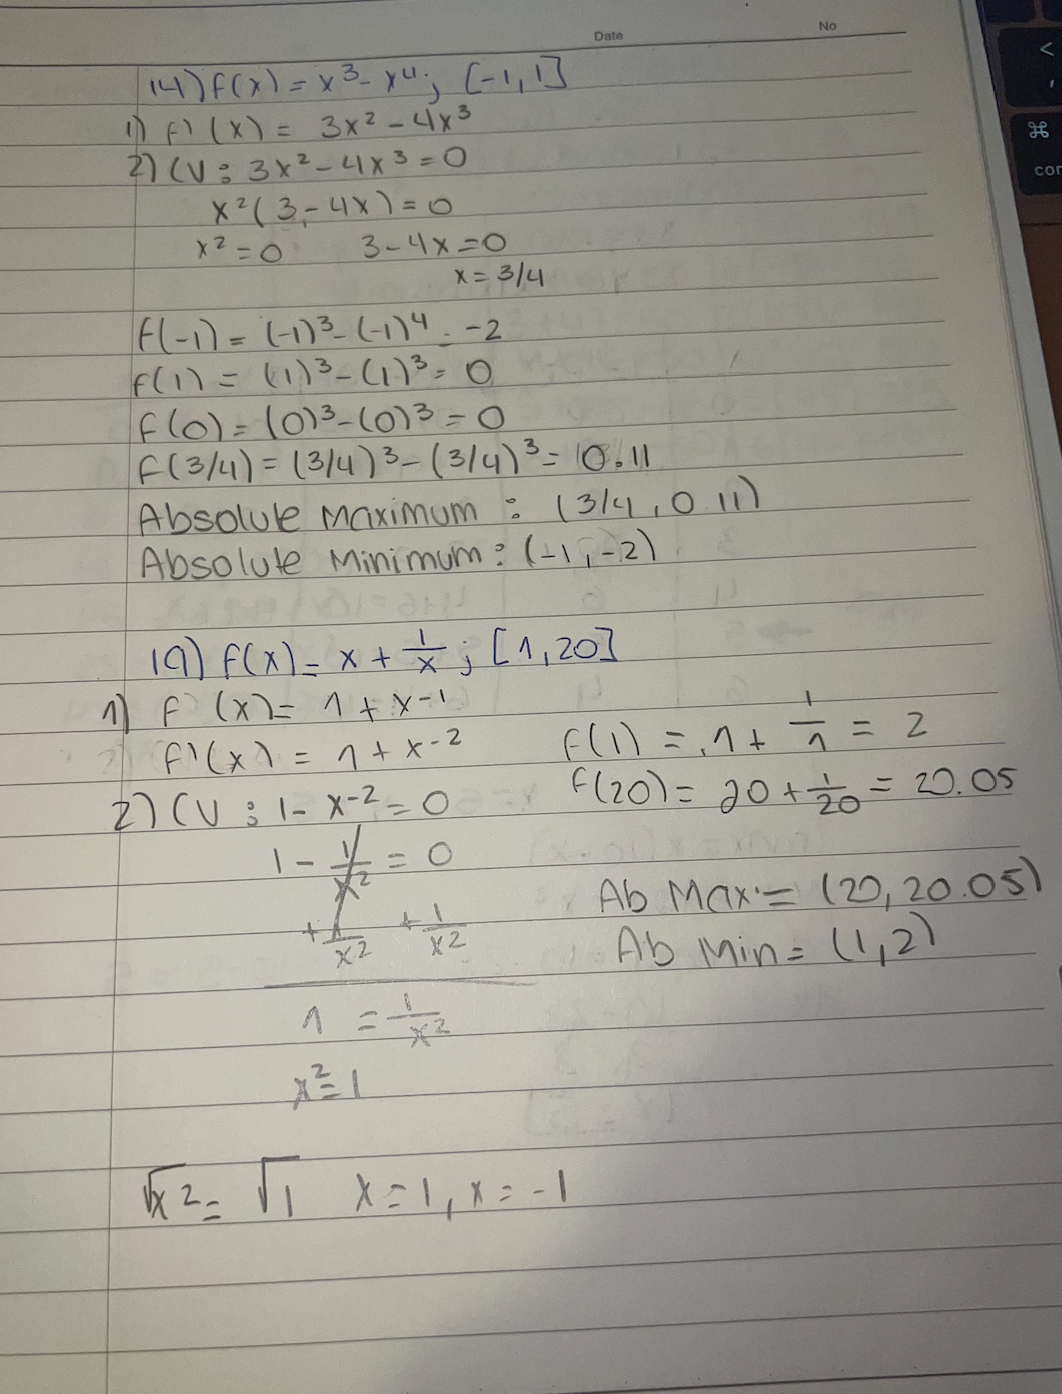 Date
No
14) f(x) = x³ - x⁴; [-1, 1]
1) f'(x) = 3x² - 4x³
2) CV: 3x² - 4x³ = 0
x²(3 - 4x) = 0
x² = 0 3 - 4x = 0
x = 3/4
f(-1) = (-1)³ - (-1)⁴ = -2
f(1) = (1)³ - (1)³ = 0
f(0) = (0)³ - (0)³ = 0
f(3/4) = (3/4)³ - (3/4)³ = 0.11
Absolute Maximum: (3/4, 0.11)
Absolute Minimum: (-1, -2)
19) f(x) = x + 1/x; [1, 20]
1) f (x) = 1 + x-1
f'(x) = 1 + x-2
2) CV: 1 - x-2 = 0
1 - 1/x² = 0
+ 1/x² + 1/x²
1 = 1/x²
x² = 1
√x² = √1 x = 1, x = -1
f(1) = 1 + 1/1 = 2
f(20) = 20 + 1/20 = 20.05
Ab Max = (20, 20.05)
Ab Min = (1, 2)
<
,
⌘